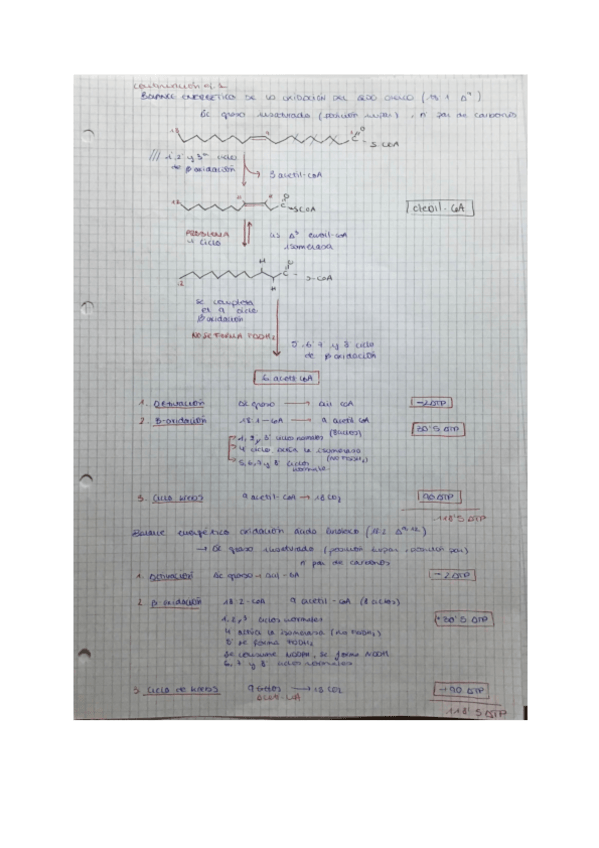 Balance energético de la oxidación del ácido oleico (18:1 Δ⁹)
Ác graso insaturado (posición impar), nº par de carbonos
18
C
O
S-CoA
1, 2 y 3er ciclo
de β oxidación
3 acetil-CoA
12
C
O
SCoA
PROBLEMA
4 ciclo
enoil-CoA
isomerasa
H
C
O
S-CoA
12
H
se completa
el 4 ciclo
β oxidación
NO SE FORMA FADH₂
5, 6, 7 y 8 ciclo
de β oxidación
6 acetil CoA
1. Activación Ác graso → acil CoA -2 ATP
2. β-oxidación 18:1-CoA → 9 acetil CoA
1, 2 y 3 ciclos normales
4 ciclo actúa la isomerasa
(NO FADH₂)
5, 6, 7 y 8 ciclos
normales
3. Ciclo Krebs 9 acetil-CoA → 18 CO₂ 90 ATP
118'5 ATP
Balance energético oxidación ácido linoleico (18:2 Δ⁹,¹²)
→ Ác graso insaturado (posición impar, posición par)
nº par de carbonos
1. Activación Ác graso → acil-CoA -2 ATP
2. β-oxidación 18:2-CoA 9 acetil-CoA (8 ciclos)
+30'5 ATP
1, 2, 3 ciclos normales
4 actúa la isomerasa (NO FADH₂)
5 se forma FADH₂
se consume NADPH, se forma NADH
6, 7 y 8 ciclos normales
3. Ciclo de Krebs → 18 CO₂ 90 ATP
118'5 ATP